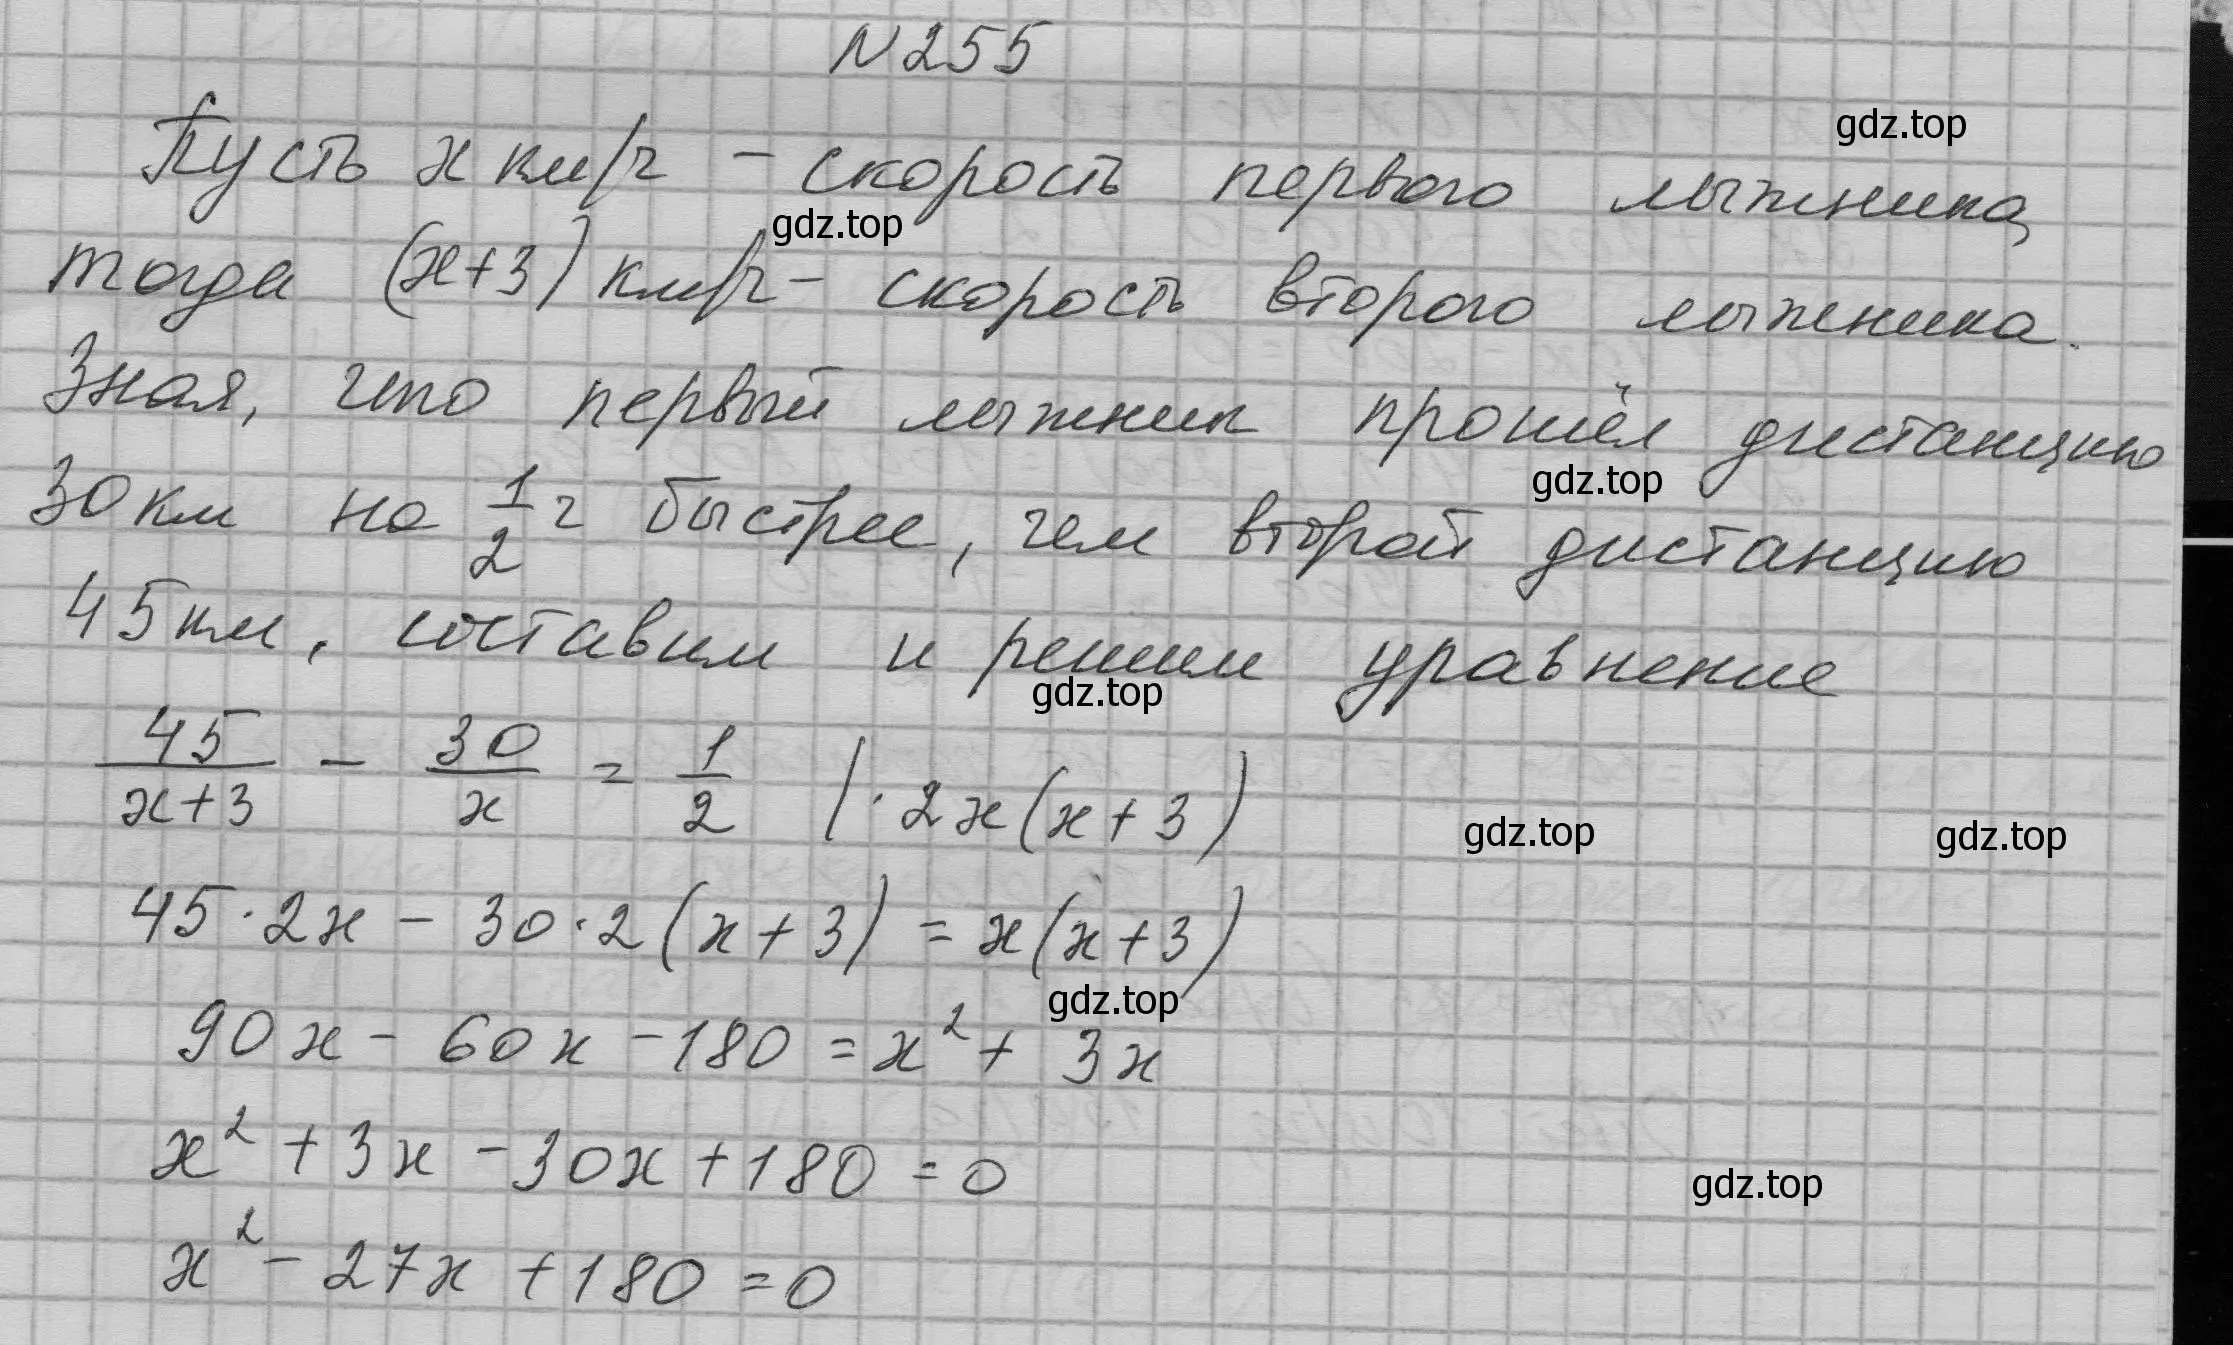 N 255
gdz.top
Пусть x км/ч – скорость первого лыжника,
gdz.top
тогда (x+3) км/ч – скорость второго лыжника.
Зная, что первый лыжник прошёл дистанцию
gdz.top
30 км на 1/2 ч быстрее, чем второй дистанцию
45 км, составим и решим уравнение
gdz.top
45/(x+3) – 30/x = 1/2 | · 2x(x+3)
gdz.top gdz.top
45 · 2x – 30 · 2(x+3) = x(x+3)
gdz.top
90x – 60x – 180 = x² + 3x
x² + 3x – 30x + 180 = 0
gdz.top
x² – 27x + 180 = 0